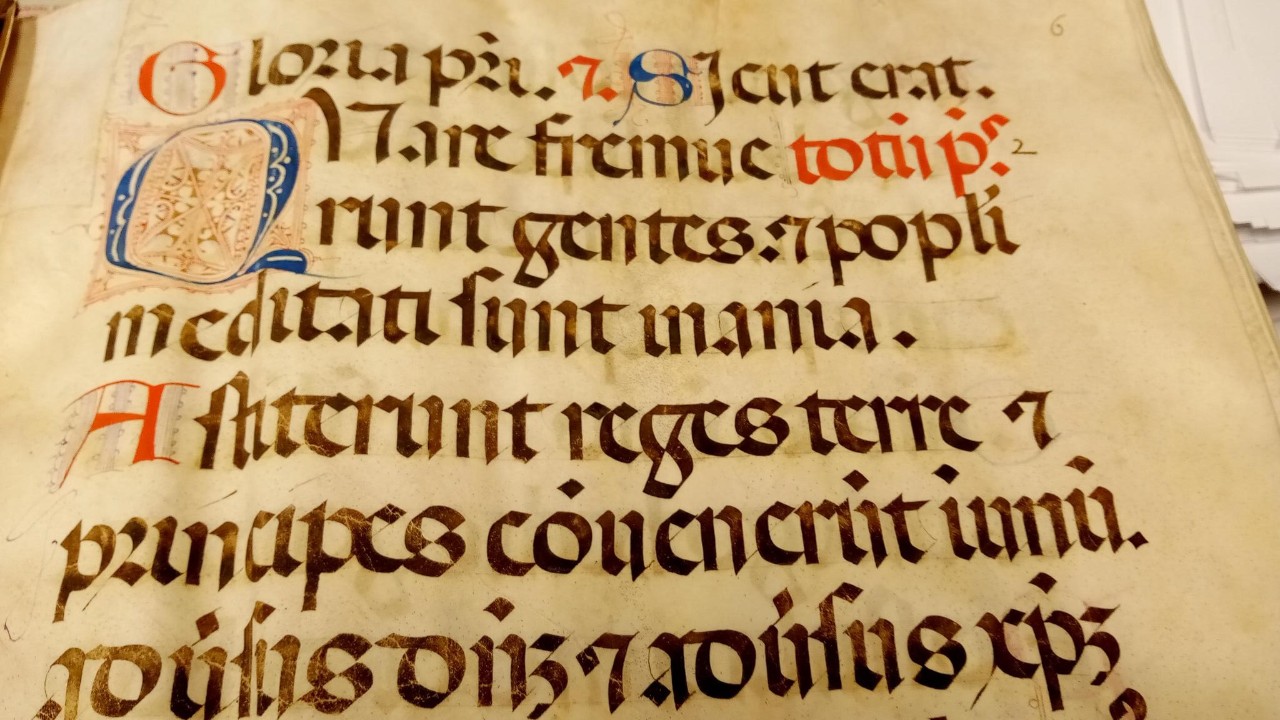 Gloria pr̃i. ⁊. Sicut erat.
QUare fremue totũ pˢ. 2
runt gentes: ⁊ popl̃i
meditati sunt inania.
Astiterunt reges terre ⁊
principes cõuenerũt inunũ.
aduẽsus dñʒ ⁊ aduẽsus xp̃ʒ
6